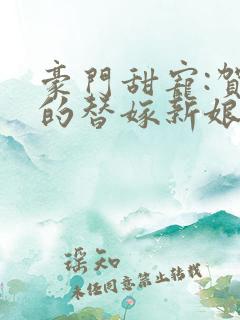 豪門甜寵:賀
的替嫁新娘
瑤知
未经同意禁止转载